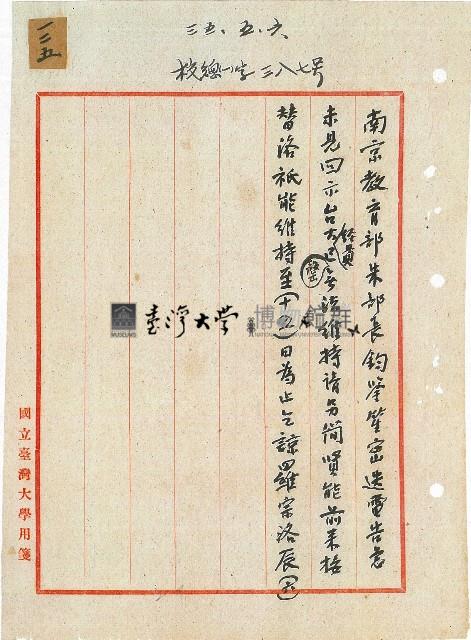 一三五
三五、五、六
校總(一)字三八七号
南京教育部朱部長鈞鑒密迭電告急
未見回示台大經費已罄無法維持請另簡賢能前來接
替洛祇能維持至(十五)日為止乞諒羅宗洛辰
國立臺灣大學用箋
臺灣大學
博物館群
MUSEUMS